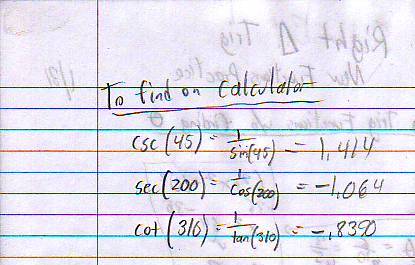 To find on Calculator
csc (45) = 1/sin(45) = 1.414
sec (200) = 1/cos(200) = -1.064
cot (310) = 1/tan(310) = -.8390